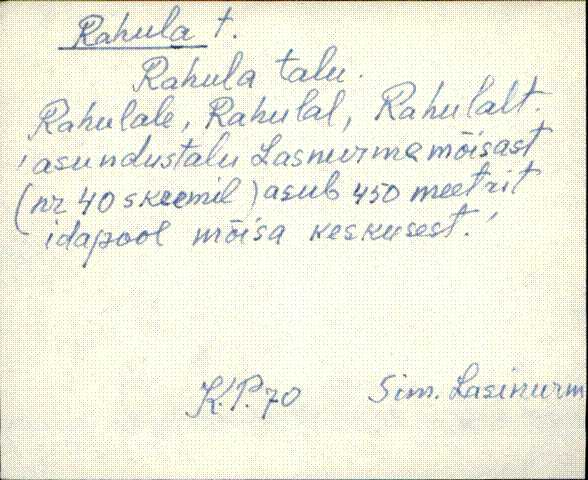 Rahula t.
Rahula talu.
Rahulale, Rahulal, Rahulalt.
'asundustalu Lasnurme mõisast
(nr 40 skeemil) asub 450 meetrit
idapool mõisa keskusest.'
K.P.70 Sim. Lasinurm